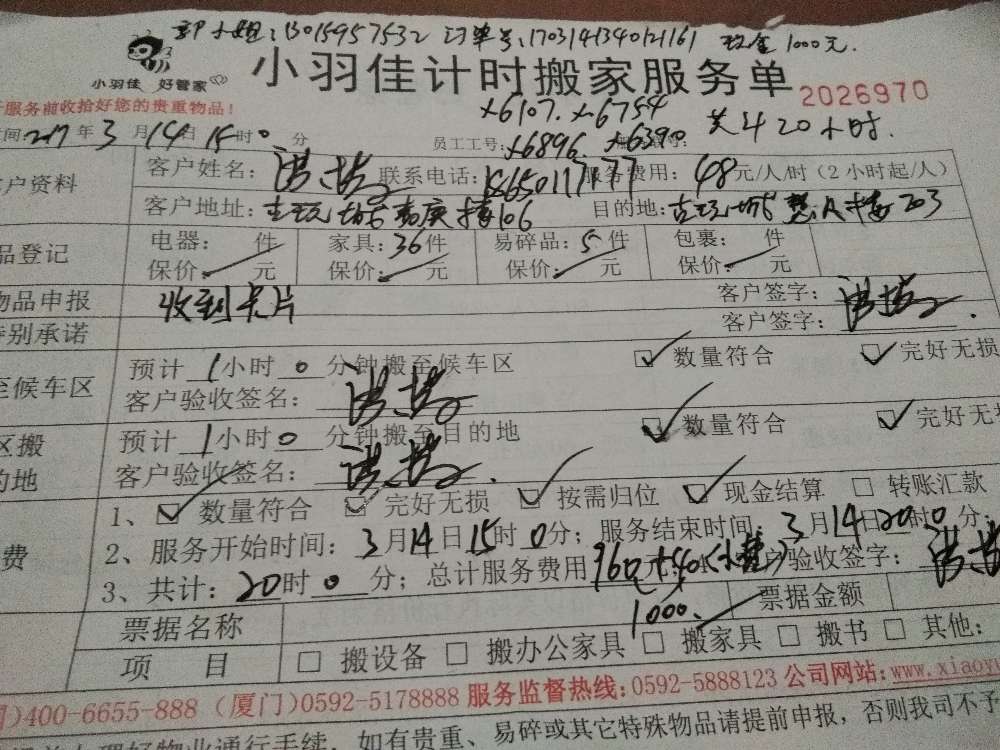 郭小姐:13015957532 订单号:1703141340121161 现金1000元.
小羽佳 好管家
小羽佳计时搬家服务单
2026970
服务前收拾好您的贵重物品!
x6107. x6754
间2017年3月14日15时0分
员工工号: x6896 x6390
共4 20小时.
户资料 客户姓名: 联系电话:18650117777 服务费用:48元/人/时(2小时起/人)
客户地址: 106 目的地: 203
品登记 电器: 件 家具:36件 易碎品:5件 包裹: 件
保价: 元 保价: 元 保价: 元 保价: 元
物品申报 收到卡片 客户签字:
特别承诺 客户签字:
至候车区 预计1小时0分钟搬至候车区 数量符合 完好无损
客户验收签名:
区搬 预计1小时0分钟搬至目的地 数量符合 完好无损
的地 客户验收签名:
1、 数量符合 完好无损 按需归位 现金结算 转账汇款
费 2、服务开始时间:3月14日15时0分; 服务结束时间:3月14日20时0分;
3、共计:20时0分; 总计服务费用960元+40 客户验收签字:
1000.
票据名称 票据金额
项 目 搬设备 搬办公家具 搬家具 搬书 其他:
)400-6655-888 (厦门)0592-5178888 服务监督热线:0592-5888123 公司网站:www.xiaoy
办理好物业通行手续, 如有贵重、易碎或其它特殊物品请提前申报, 否则我司不予